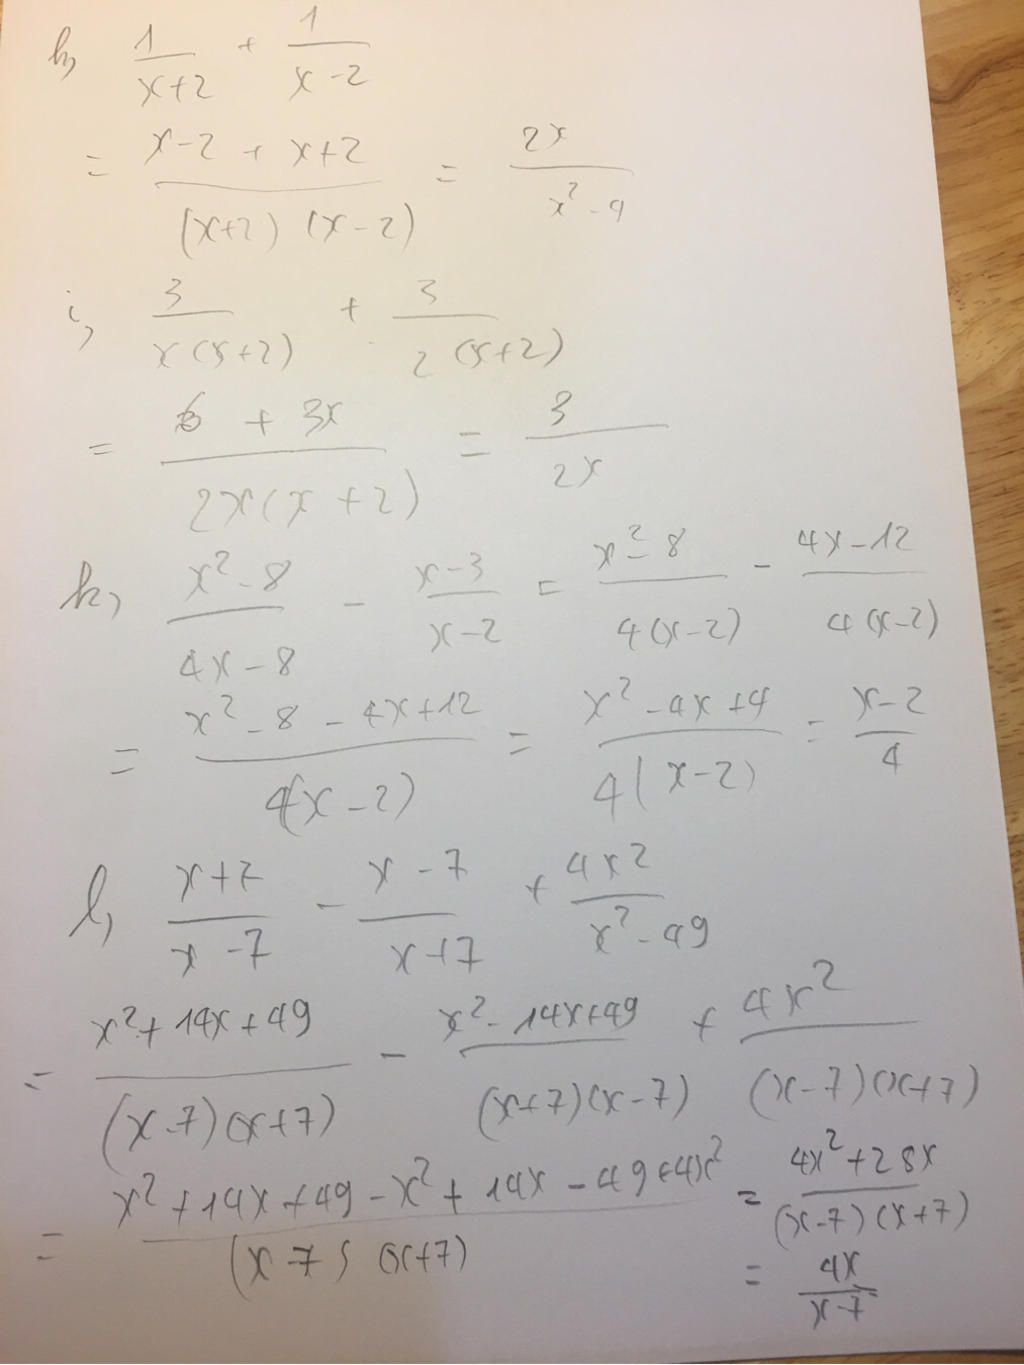 h, 1/(x+2) + 1/(x-2)
= (x-2 + x+2)/((x+2)(x-2)) = 2x/(x²-4)
i, 3/(x(x+2)) + 3/(2(x+2))
= (6 + 3x)/(2x(x+2)) = 3/(2x)
k, (x²-8)/(4x-8) - (x-3)/(x-2) = (x²-8)/(4(x-2)) - (4x-12)/(4(x-2))
= (x²-8-4x+12)/(4(x-2)) = (x²-4x+4)/(4(x-2)) = (x-2)/4
l, (x+7)/(x-7) - (x-7)/(x+7) + 4x²/(x²-49)
= (x²+14x+49)/((x-7)(x+7)) - (x²-14x+49)/((x+7)(x-7)) + 4x²/((x-7)(x+7))
= (x²+14x+49-x²+14x-49+4x²)/((x-7)(x+7)) = (4x²+28x)/((x-7)(x+7))
= 4x/(x-7)